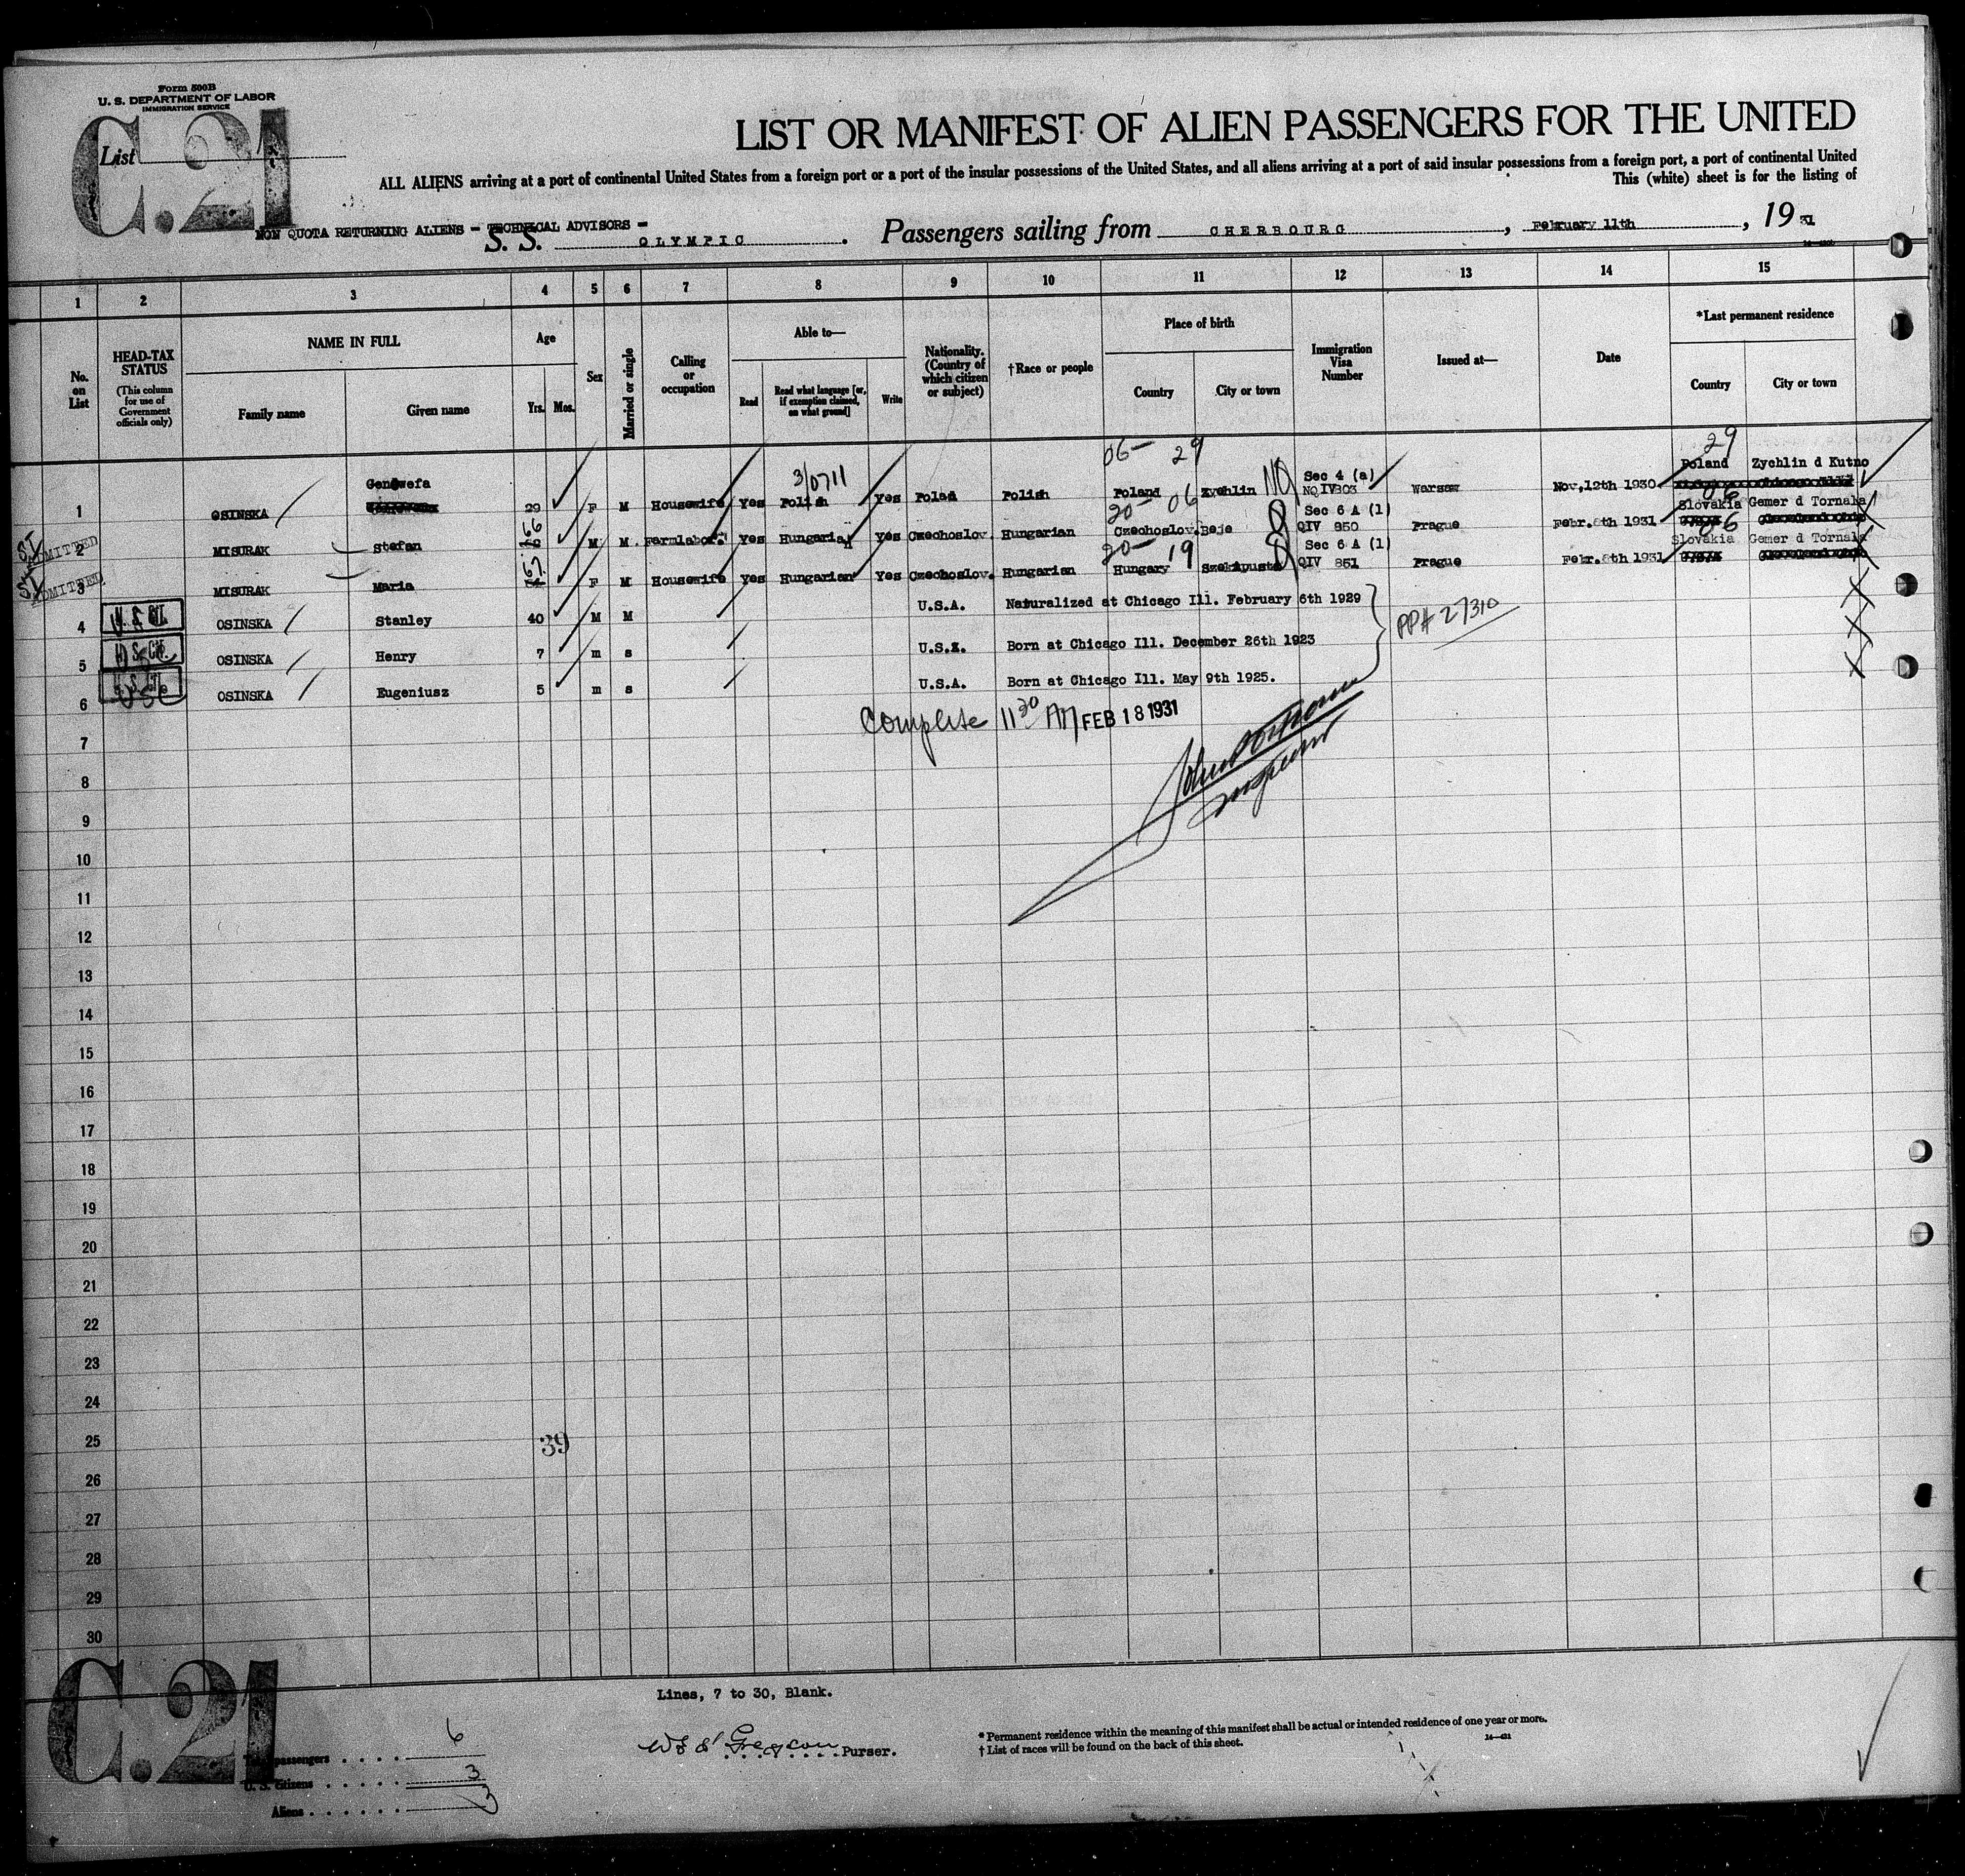 Form 500B
U. S. DEPARTMENT OF LABOR
IMMIGRATION SERVICE
C.21
List
LIST OR MANIFEST OF ALIEN PASSENGERS FOR THE UNITED
ALL ALIENS arriving at a port of continental United States from a foreign port or a port of the insular possessions of the United States, and all aliens arriving at a port of said insular possessions from a foreign port, a port of continental United
This (white) sheet is for the listing of
NON QUOTA RETURNING ALIENS - TECHNICAL ADVISORS -
S. S. OLYMPIC . Passengers sailing from CHERBOURG , February 11th , 19 31
1 2 3 4 5 6 7 8 9 10 11 12 13 14 15
No. on List
HEAD-TAX STATUS
(This column for use of Government officials only)
NAME IN FULL
Family name
Given name
Age
Yrs. Mos.
Sex
Married or single
Calling or occupation
Able to—
Read
Read what language [or, if exemption claimed, on what ground]
Write
Nationality. (Country of which citizen or subject)
†Race or people
Place of birth
Country
City or town
Immigration Visa Number
Issued at—
Date
*Last permanent residence
Country
City or town
06— 29 29
Genowefa 3/0711 Sec 4 (a) Poland Zychlin d Kutno
1 OSINSKA 29 F M Housewife Yes Polish Yes Polan Polish Poland Zychlin NQIV303 Warsaw Nov,12th 1930
66 20— 06 Sec 6 A (1) Slovakia Gemer d Tornala
ADMITTED 2 MISURAK Stefan M M Farmlabor. Yes Hungarian Yes Czechoslov. Hungarian Czechoslov. Beje QIV 850 Prague Febr.6th 1931
67. 20— 19 Sec 6 A (1) Slovakia Gemer d Tornala
ADMITTED 3 MISURAK Maria F M Housewife Yes Hungarian Yes Czechoslov. Hungarian Hungary QIV 851 Prague Febr.6th 1931
4 OSINSKA Stanley 40 M M U.S.A. Naturalized at Chicago Ill. February 6th 1929
PP# 27310
5 OSINSKA Henry 7 m s U.S.A. Born at Chicago Ill. December 26th 1923
6 OSINSKA Eugeniusz 5 m s U.S.A. Born at Chicago Ill. May 9th 1925.
Complete 11 30 AM FEB 18 1931
Inspector
7
8
9
10
11
12
13
14
15
16
17
18
19
20
21
22
23
24
25
39
26
27
28
29
30
C.21
Lines, 7 to 30, Blank.
passengers . . . . 6
U. S. Citizens . . . . . 3
Aliens . . . . . . 3
Purser.
* Permanent residence within the meaning of this manifest shall be actual or intended residence of one year or more.
† List of races will be found on the back of this sheet.